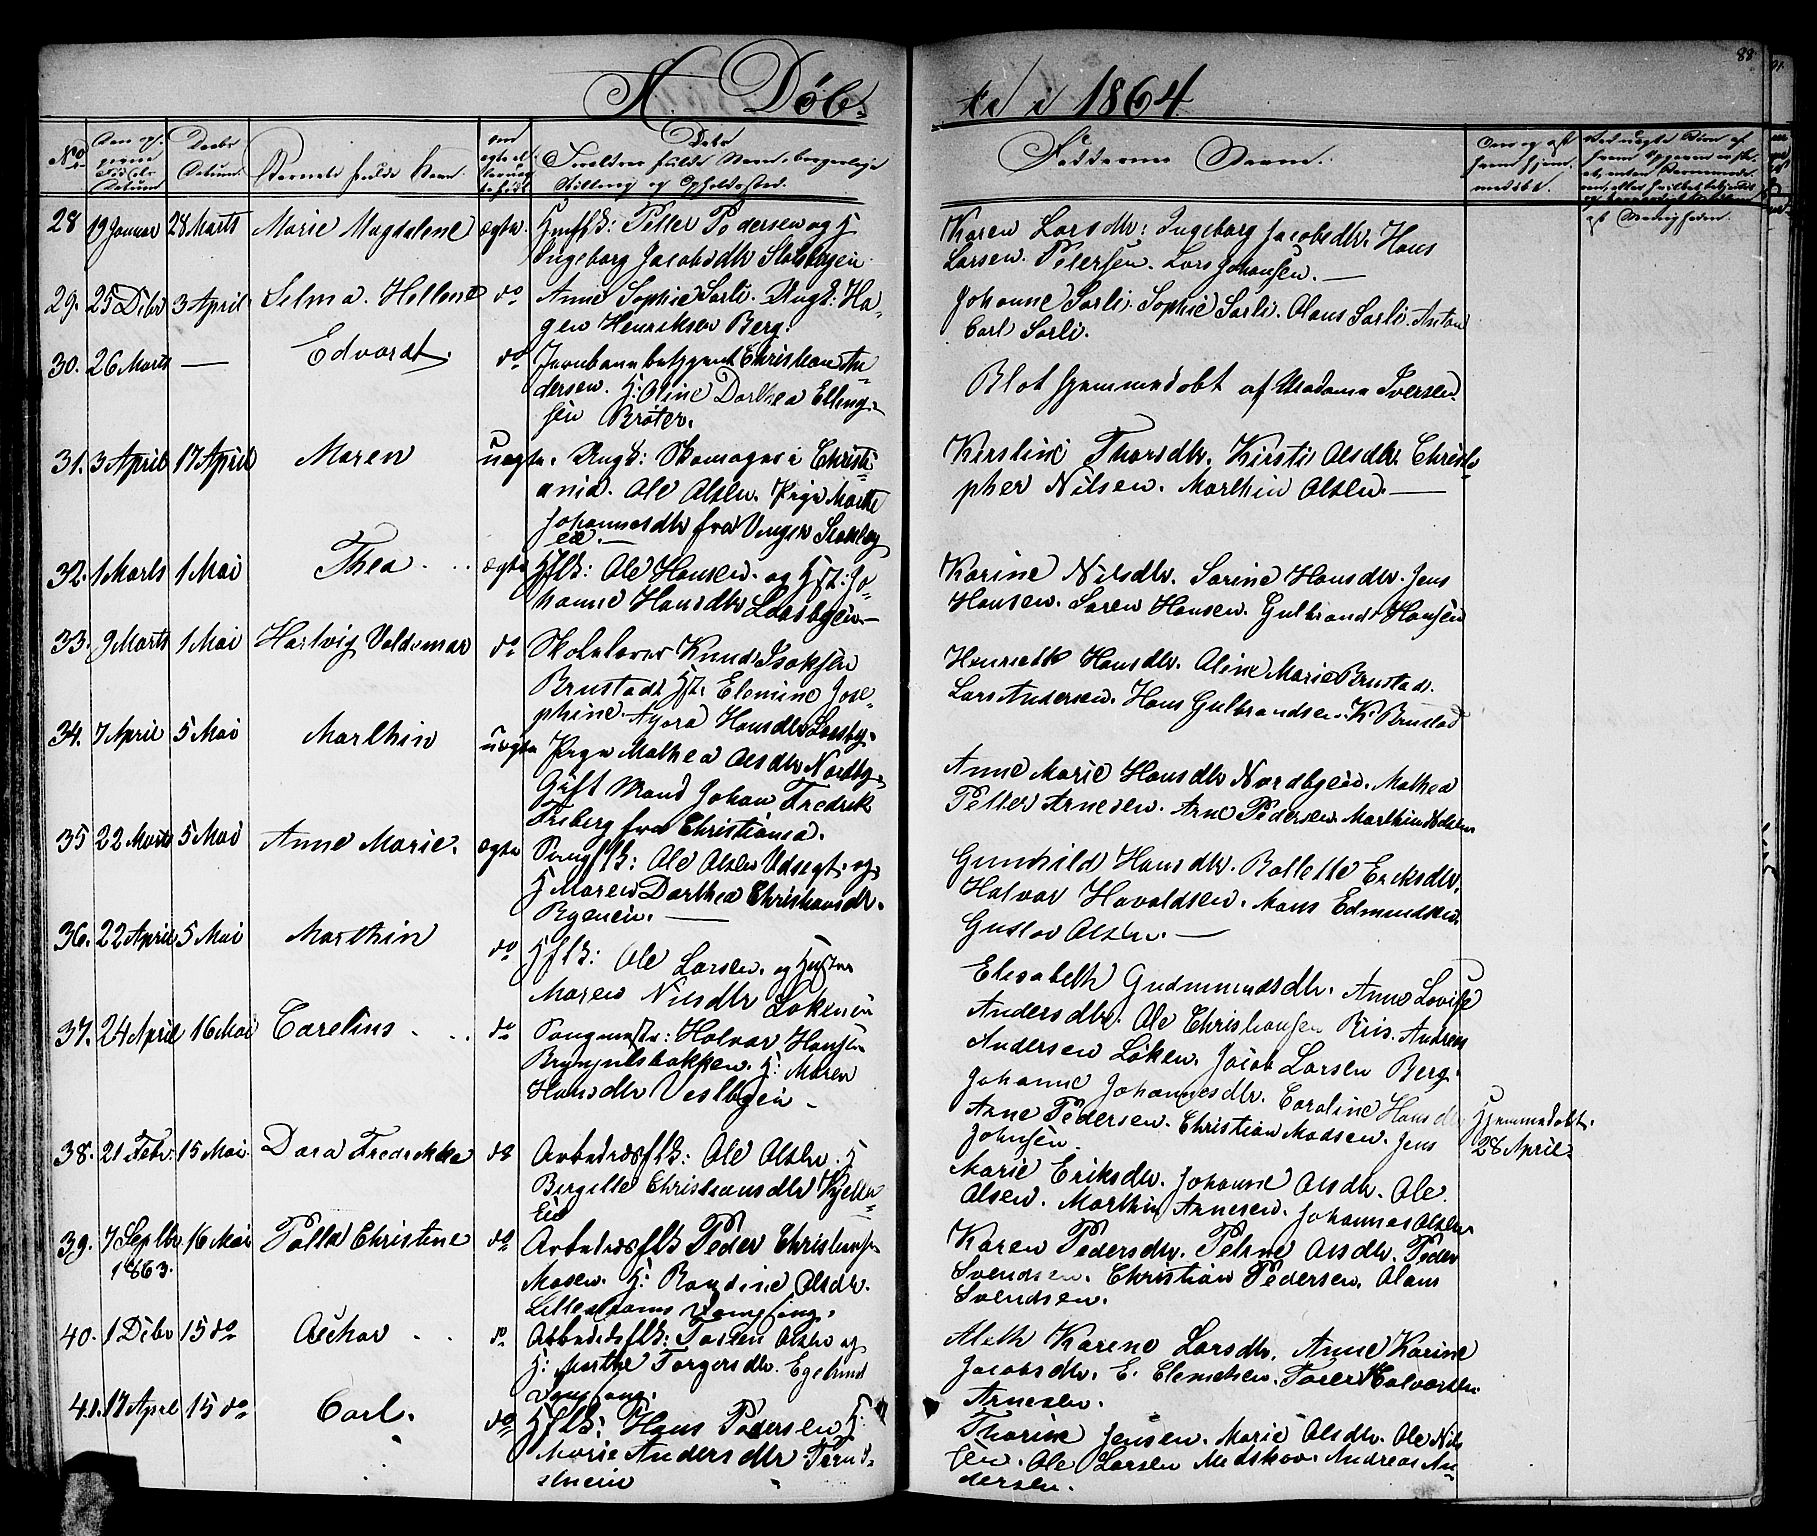 88
A. Døb- te i 1864
No
Daabs
Datum
Barnets fulde Navn
Forældres fulde Navn, borgerlige
Stilling og Opholdssted.
Faddernes Navne.
28 19 Januar 28 Marts Marie Magdalene ægte Petter Pedersen og H
Ingeborg Jacobsdtr
Karen Larsdtr: Ingeborg Jacobsdtr. Hans
Larsen. Petersen. Lars Johansen. —
29. 25 Dcbr 3 April Selma. Hellene do Anne Sophie Sørli. Ungk: Ha-
gen Henriksen Berg.
Johanne Sørli. Sophie Sørli. Olaus Sørli. Anton
Carl Sørli.
30. 26 Marts — Edvardt. do Jernbanebetjent Christian An-
dersen. H: Oline Dorthea Elling-
sen Brøter.
Blot hjemmedøbt af Madame Iversen.
31. 3 April 17 April Maren uægte. Ungk: Skomager i Christi-
ania. Ole Olsen. Pige Marthe
Johannesdtr fra
Kirstine Thorsdtr. Kirsti Olsdtr. Christo-
pher Nilsen. Marthin Olsen. —
32. 1 Marts 1 Mai Thea. ægte Hflk: Ole Hansen. og Hst: Jo-
hanne Hansdtr Losbyeie. —
Karine Nilsdtr. Sørine Hansdtr. Jens
Hansen. Søren Hansen. Gulbrand Hansen
33. 9 Marts 1 Mai Hartvig Valdemar do Skolelærer Knud Isaksen
Brustad Hst. Elemine Jose-
phine. Hansdtr Losby.
Hansdtr. Oline Marie Brustad.
Lars Andersen. Hans Gulbrandsen. K. Brustad
34. 7 April 5 Mai Marthin uægte Pige Mathea Olsdtr Nordby-
Gift Mand Johan Fredrik
Friberg fra Christiania.
Anne Marie Hansdtr Nordbyeie. Mathea
Petter Arnesen. Arne Pedersen. Marthin Olsen
35 22 Marts 5 Mai Anne Marie. ægte Ole Olsen og
H Maren Dorthea Christiansdtr.
Gunhild Hansdtr. Bollette Eriksdtr.
Halvor Havoldsen. Mons Edmundsen
Gustav Olsen. —
36. 22 April 5 Mai Marthin do Hflk: Ole Larsen. og Hustru
Maren Nilsdtr Løkeneie
Elisabeth Gudmundsdtr. Anne Lovise
Andersdtr. Ole Christiansen Riis. Andreas
Andersen Løken. Jacob Larsen Berg.
37. 24 April 16 Mai Carelius. do Halvor Hansen
Brynjulsbakken. H: Maren
Hansdtr Vesbyeie —
Johanne Johannesdtr. Caroline Hansdtr
Arne Pedersen. Christian Madsen. Jens
Johnsen
Hjemmedøbt.
28 April
38. 21 Febr. 15 Mai Dora Fredrikke do Arbeidsflk: Ole Olsen. H
Bergitte Christiansdtr
Eie
Marie Eriksdtr. Johanne Olsdtr. Ole
Olsen. Marthin Arnesen. Johannes Olsen
39. 7 Septbr 16 Mai Palle Christine do Arbeidsflk Peder Christiansen
1863.
Mosen. H: Randine Olsdtr.
Karen Pedersdtr. Petrine Olsdtr. Peder
Svendsen. Christian Pedersen. Olaus
Svendsen.
40. 1 Dcbr 15 do do Arbeidsflk: Olsen og
H: Marthe Torgersdtr. Egelund
Aleth Karene Larsdtr. Anne Karine
Jacobsdtr. E. Clemetsen. Torer Halvorsen.
Arnesen.
41. 17 April 15 do Carl. do Hflk: Hans Pedersen H:
Marie Andersdtr
Thorine Jensen. Marie Olsdtr. Ole Nils-
sen. Ole Larsen Medskov. Andreas An-
dersen.